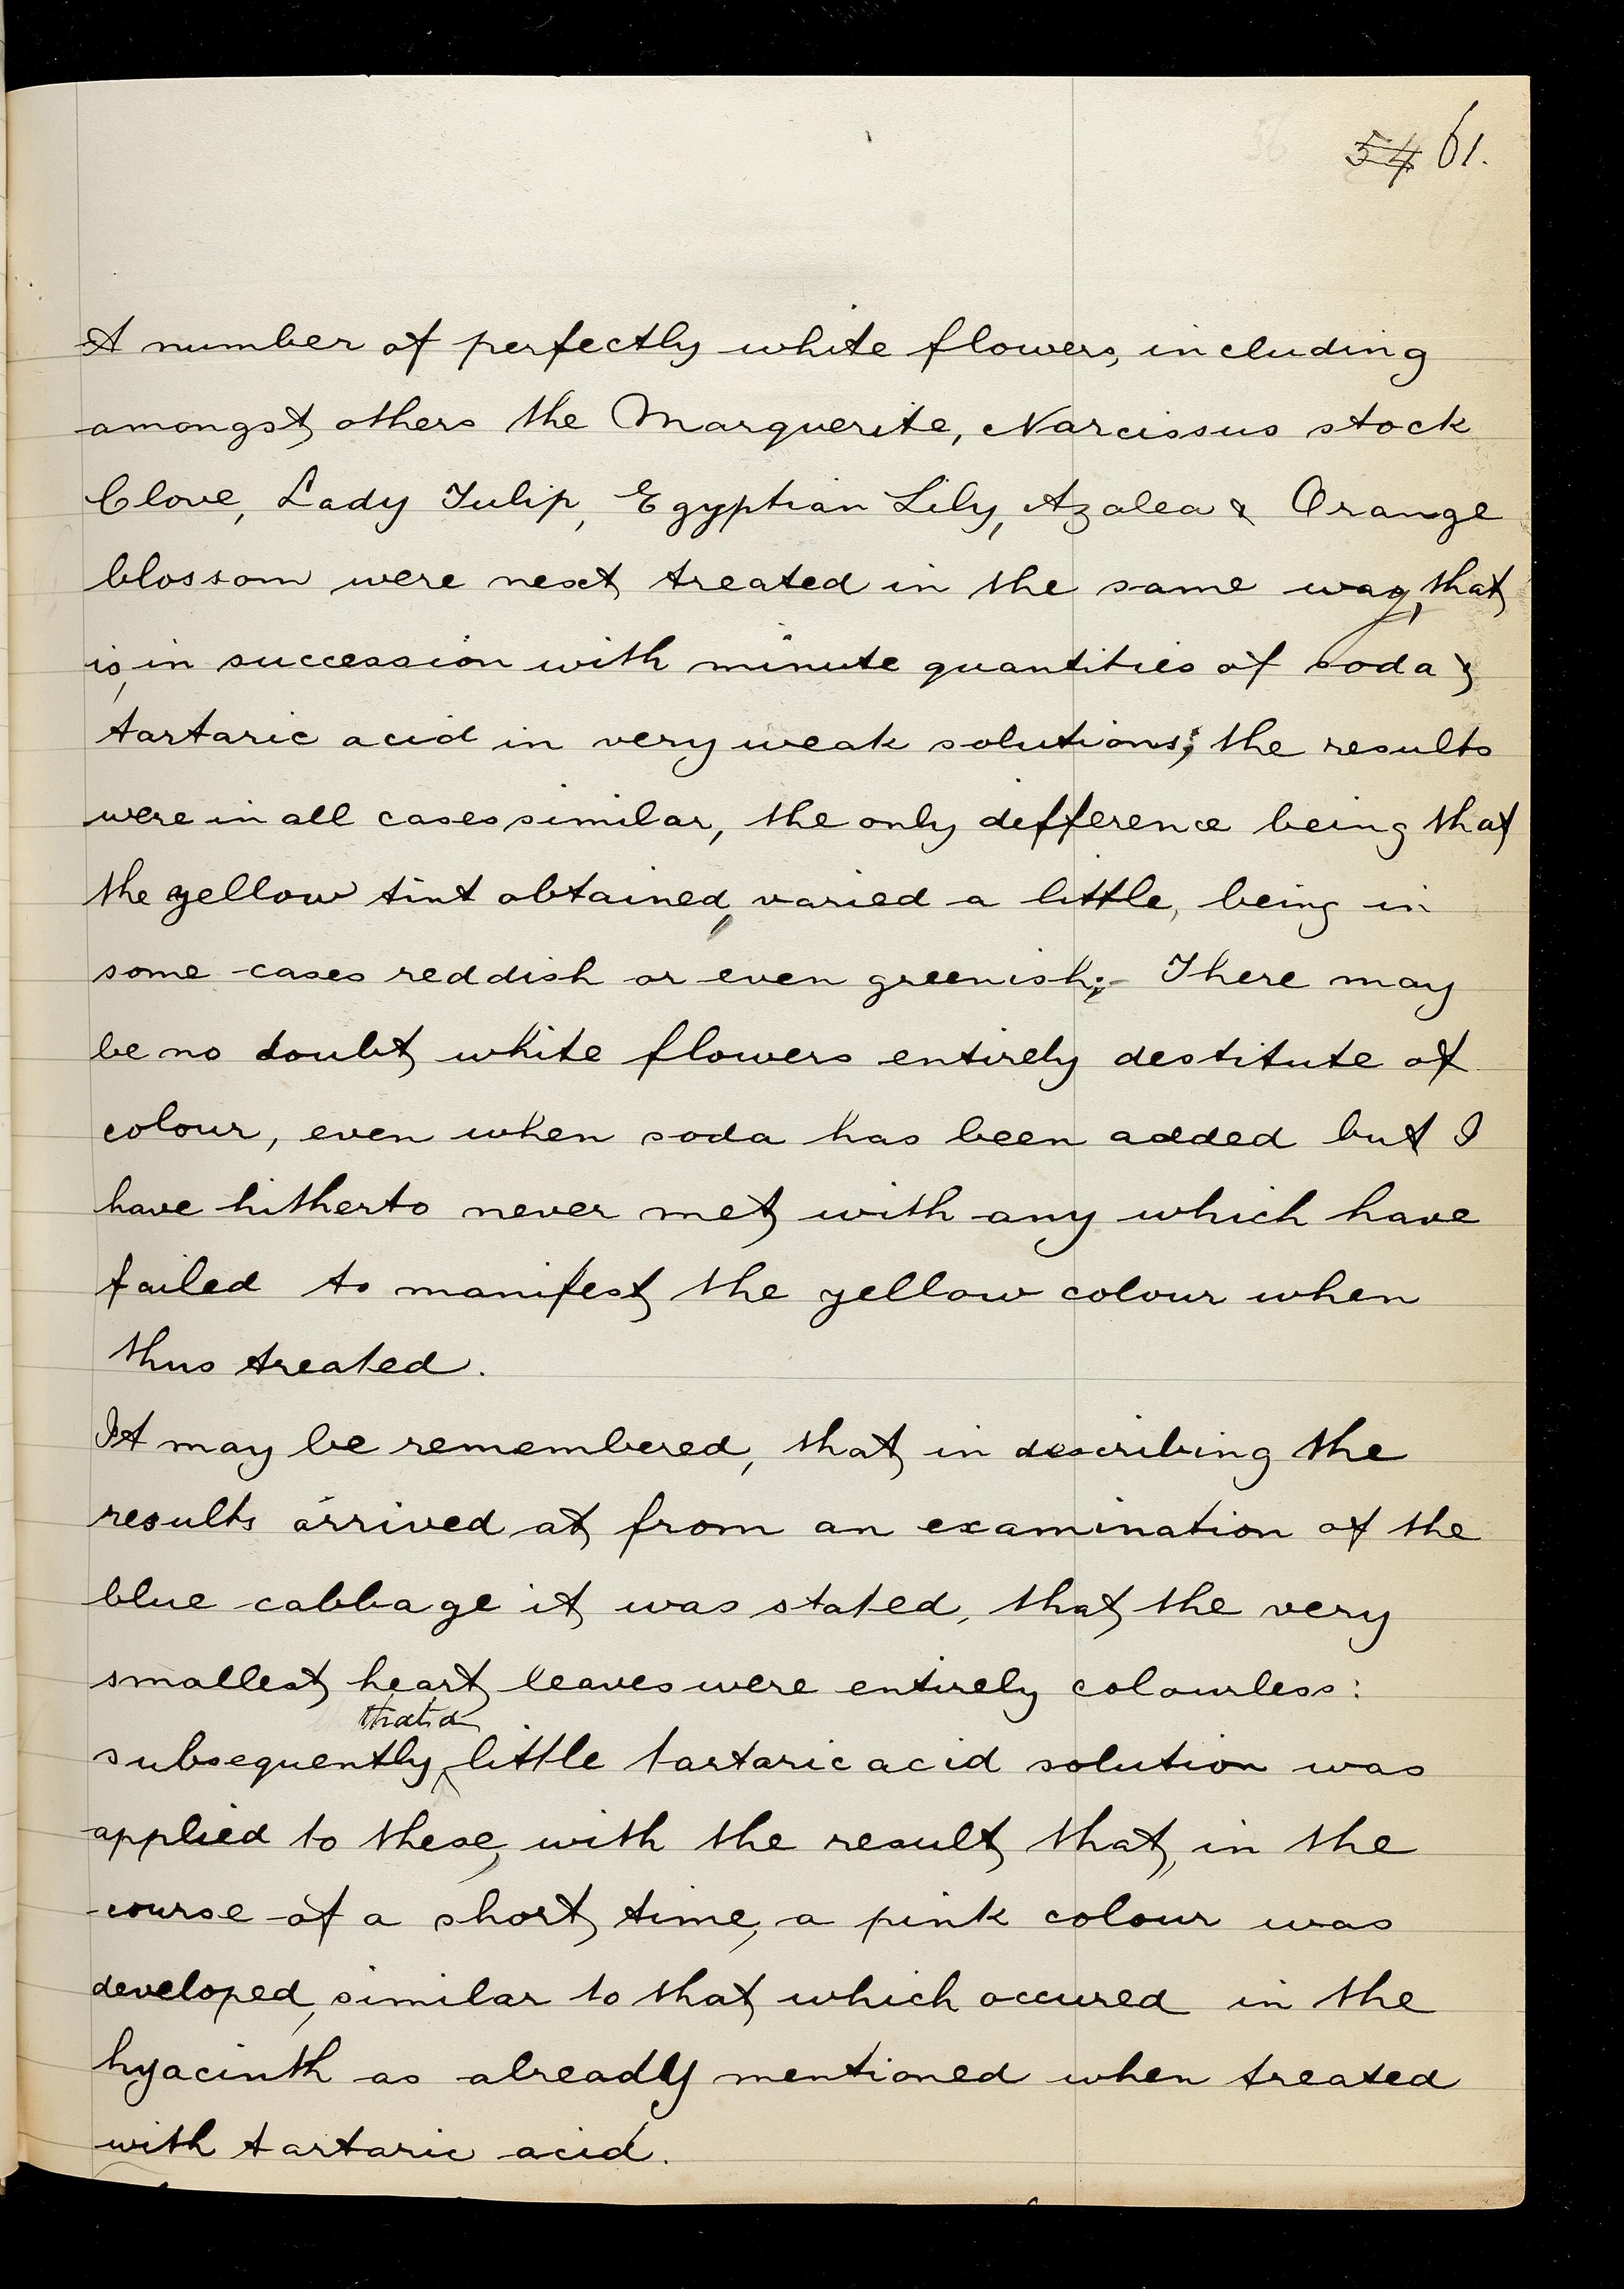 54 61.
A number of perfectly white flowers, including
amongst others the Marguerite, Narcissus stock
Clove, Lady Tulip, Egyptian Lily, Azalea & Orange
blossom were next treated in the same way, that
is, in succession with minute quantities of soda &
tartaric acid in very weak solutions; the results
were in all cases similar, the only difference being that
the yellow tint obtained, varied a little, being in
some cases reddish or even greenish;- There may
be no doubt white flowers entirely destitute of
colour, even when soda has been added but I
have hitherto never met with any which have
failed to manifest the yellow colour when
thus treated.
It may be remembered, that in describing the
results arrived at from an examination of the
blue cabbage it was stated, that the very
smallest heart leaves were entirely colourless:
that a
subsequently little tartaric acid solution was
applied to these, with the result that, in the
course of a short time, a pink colour was
developed, similar to that which occured in the
hyacinth as already mentioned when treated
with tartaric acid.